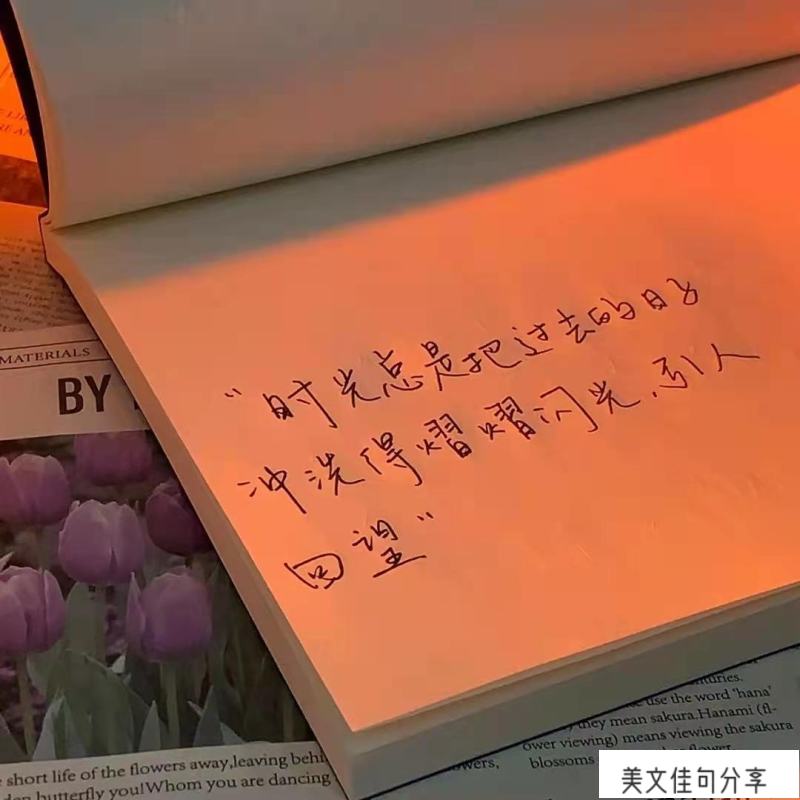 MATERIALS
BY
"时光总是把过去的日子
冲洗得熠熠闪光,引人
回望"
short life of the flowers away,leaving behi
butterfly you!Whom you are dancing
use the word 'hana'
they mean sakura.Hanami (fl-
ower viewing) means viewing the sakura
blossoms
美文佳句分享